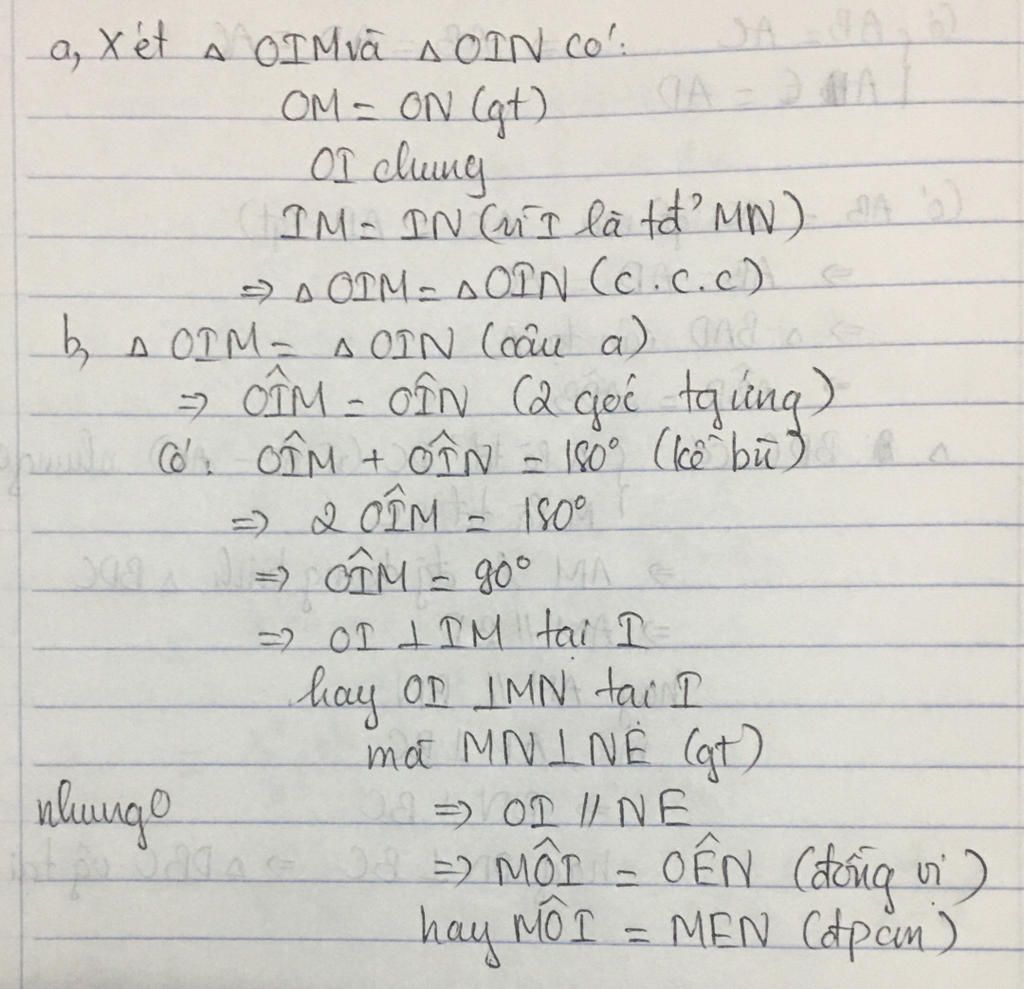 a, Xét △ OIM và △ OIN có:
OM = ON (gt)
OI chung
IM = IN (vì I là tđ' MN)
⇒ △ OIM = △ OIN (c.c.c)
b, △ OIM = △ OIN (câu a)
⇒ OÎM = OÎN (2 góc tg ứng)
Có: OÎM + OÎN = 180° (kề bù)
⇒ 2 OÎM = 180°
⇒ OÎM = 90°
⇒ OI ⊥ IM tại I
hay OI ⊥ MN tại I
mà MN ⊥ NE (gt)
nhung ⇒ OI // NE
⇒ MÔI = OÊN (đồng vị)
hay MÔI = MEN (đpcm)